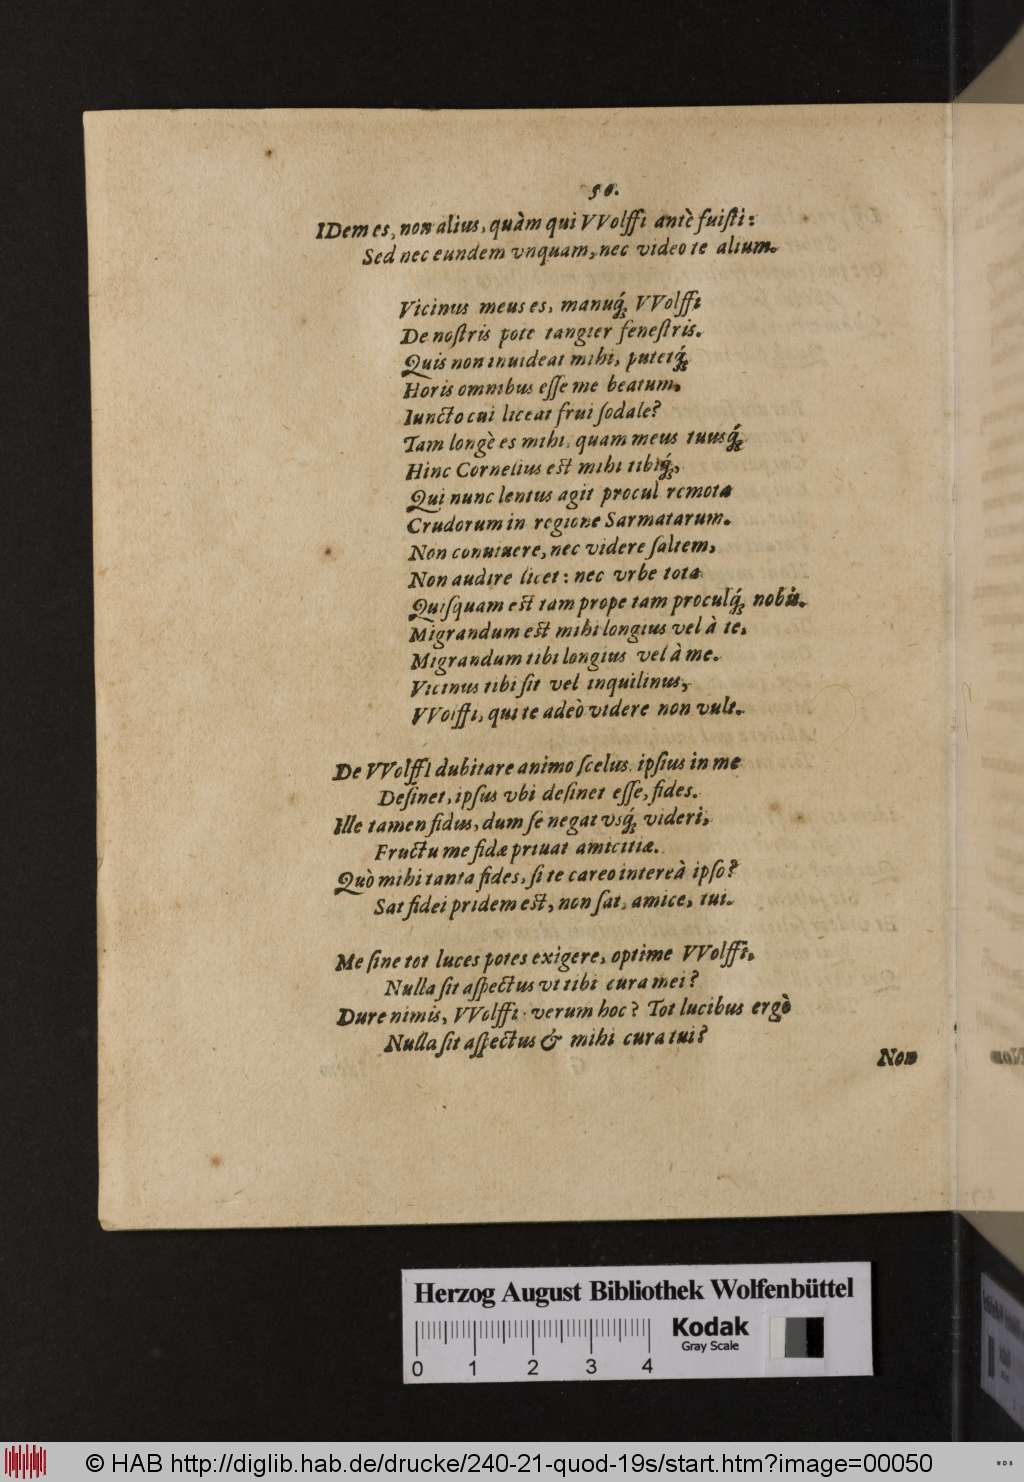 50.
IDem es, non alius, quàm qui VVolffi antè fuiſti:
Sed nec eundem vnquam, nec video te alium.
Vicinus meus es, manuq́; VVolffi
De noſtris pote tangier feneſtris.
Quis non inuideat mihi, putetq́;
Horis omnibus eſſe me beatum,
Iuncto cui liceat frui ſodale?
Tam longè es mihi, quam meus tuusq́;
Hinc Cornelius est mihi tibiq́;,
Qui nunc lentus agit procul remota
Crudorum in regione Sarmatarum.
Non conuiuere, nec videre ſaltem,
Non audire licet: nec vrbe tota
Quiſquam est tam prope tam proculq́; nobis.
Migrandum est mihi longius vel à te,
Migrandum tibi longius vel à me.
Vicinus tibi ſit vel inquilinus,
VVolffi, qui te adeò videre non vult.
De VVolffi dubitare animo ſcelus, ipſius in me
Deſinet, ipſus vbi deſinet eſſe, fides.
Ille tamen fidus, dum ſe negat vsq́; videri,
Fructu me fidæ priuat amicitiæ.
Quò mihi tanta fides, ſi te careo intereà ipſo?
Sat fidei pridem est, non ſat, amice, tui.
Me ſine tot luces potes exigere, optime VVolffi,
Nulla ſit aſpectus vt tibi cura mei?
Dure nimis, VVolffi verum hoc? Tot lucibus ergò
Nulla ſit aſpectus & mihi cura tui?
Non
Herzog August Bibliothek Wolfenbüttel
Kodak
Gray Scale
0 1 2 3 4
© HAB http://diglib.hab.de/drucke/240-21-quod-19s/start.htm?image=00050